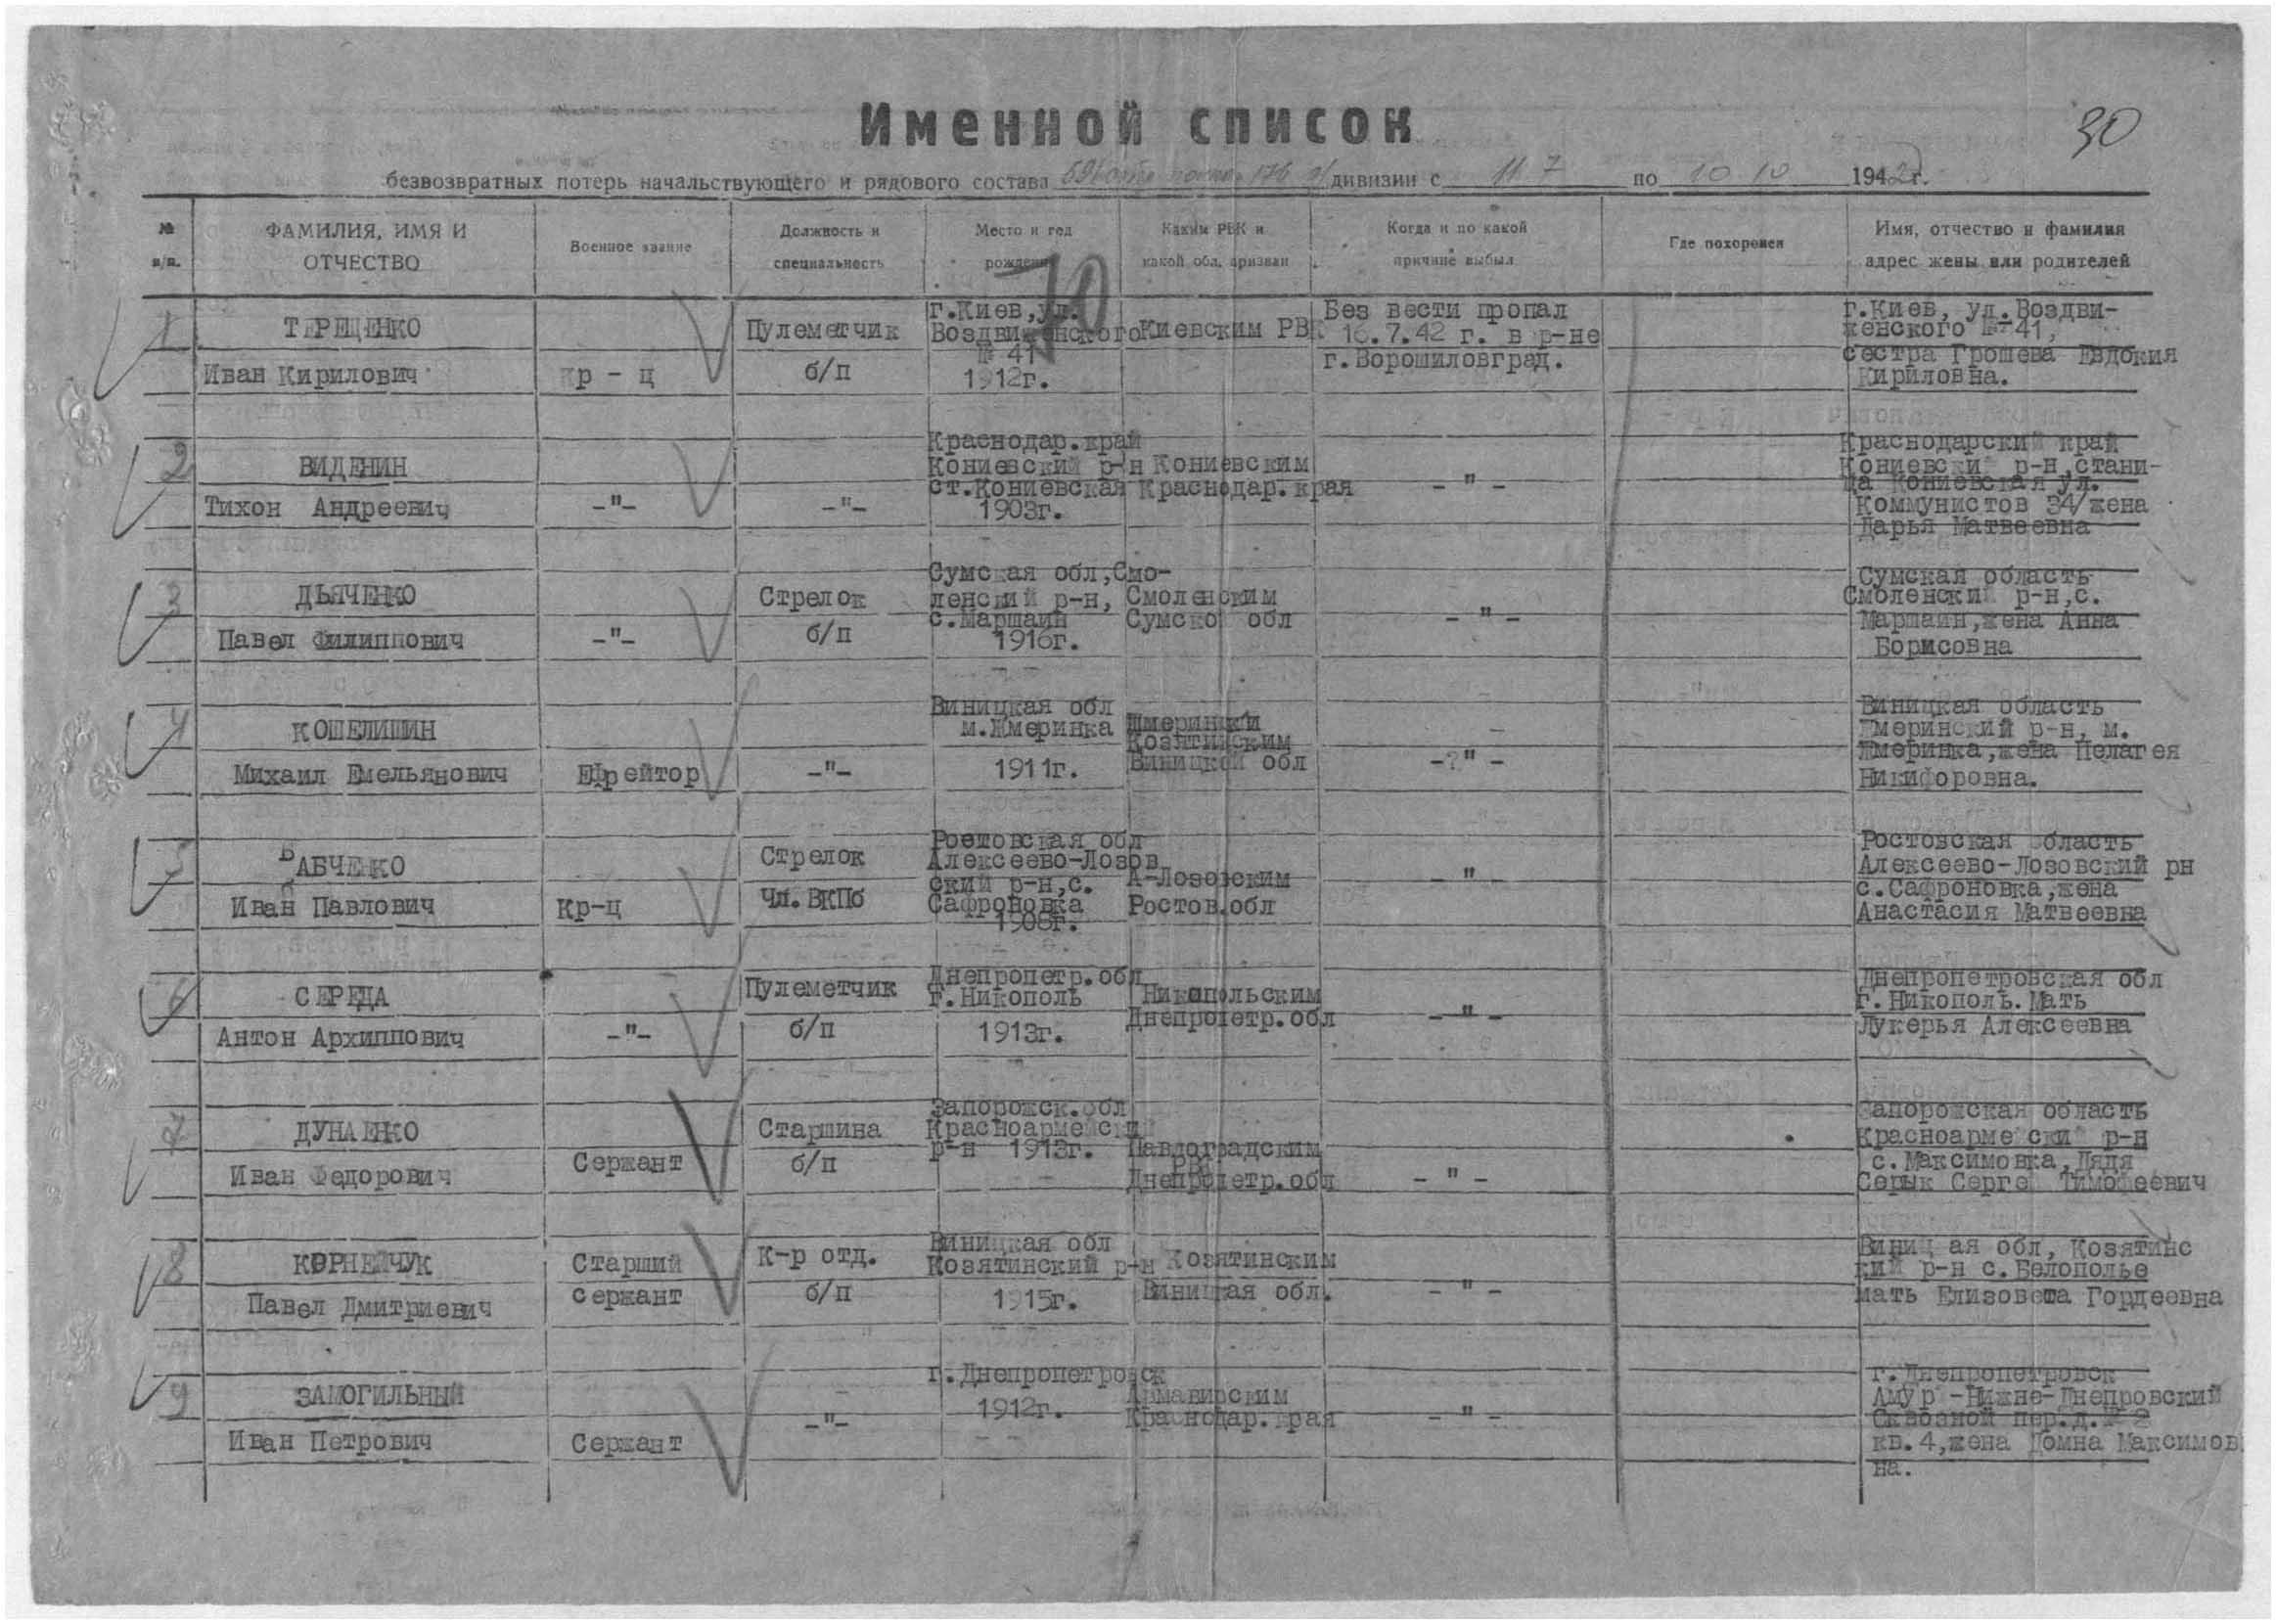 30
Именной список
безвозвратных потерь начальствующего и рядового состава 176 дивизии с 11 7 по 10 10 1942г.
№ п/п.
ФАМИЛИЯ, ИМЯ И ОТЧЕСТВО
Военное звание
Должность и специальность
Место и год рождения
Каким РВК и какой обл. призван
Когда и по какой причине выбыл
Где похоронен
Имя, отчество и фамилия адрес жены или родителей
70
1
ТЕРЕЩЕНКО
Иван Кирилович
кр - ц
Пулеметчик
б/п
г.Киев,ул.
Воздвиженского
№ 41
1912г.
Киевским РВК
Без вести пропал
16.7.42 г. в р-не
г.Ворошиловград.
г.Киев, ул.Воздви-
женского №-41,
сестра Грошева Евдокия
Кириловна.
2
ВИДЕНИН
Тихон Андреевич
-"-
-"-
Краснодар.край
Кониевский р-н
ст.Кониевская
1903г.
Кониевским
Краснодар.края
- " -
Краснодарский край
Кониевский р-н,стани-
ца Кониевская ул.
Коммунистов 34/жена
Дарья Матвеевна
3
ДЬЯЧЕНКО
Павел Филиппович
-"-
Стрелок
б/п
Сумская обл,Смо-
ленский р-н,
с.Маршаин
1916г.
Смоленским
Сумской обл
- " -
Сумская область
Смоленский р-н,с.
Маршаин,жена Анна
Борисовна
4
КОШЕЛИШИН
Михаил Емельянович
Ефрейтор
-"-
Виницкая обл
м.Жмеринка
1911г.
Козятинским
Виницкой обл
-?" -
Виницкая область
Жмеринский р-н, м.
Жмеринка,жена Пелагея
Никифоровна.
5
БАБЧЕНКО
Иван Павлович
Кр-ц
Стрелок
Чл.ВКПб
Ростовская обл
Алексеево-Лозов
ский р-н,с.
Сафроновка
1908г.
А-Лозовским
Ростов.обл
- " -
Ростовская область
Алексеево-Лозовский рн
с.Сафроновка,жена
Анастасия Матвеевна
6
СЕРЕДА
Антон Архиппович
-"-
Пулеметчик
б/п
Днепропетр.обл
г.Никополь
1913г.
Никопольским
Днепропетр.обл
- " -
Днепропетровская обл
г.Никополь.Мать
Лукерья Алексеевна
7
ДУНАЕНКО
Иван Федорович
Сержант
Старшина
б/п
Запорожск.обл
Красноармейский
р-н 1913г.
Павлоградским
РВК
Днепропетр.обл
- " -
Запорожская область
Красноармейский р-н
с.Максимовка,Дядя
Серык Сергей Тимофеевич
8
КОРНЕЙЧУК
Павел Дмитриевич
Старший
сержант
К-р отд.
б/п
Виницкая обл
Козятинский р-н
1915г.
Козятинским
Виницкая обл.
- " -
Виницкая обл, Козятинс
кий р-н с.Белополье
мать Елизовета Гордеевна
9
ЗАМОГИЛЬНЫЙ
Иван Петрович
Сержант
-"-
г.Днепропетровск
1912г.
Армавирским
Краснодар.края
- " -
г.Днепропетровск
Амур -Нижне-Днепровский
пер.д.№ 2
кв.4,жена Домна Максимов
на.